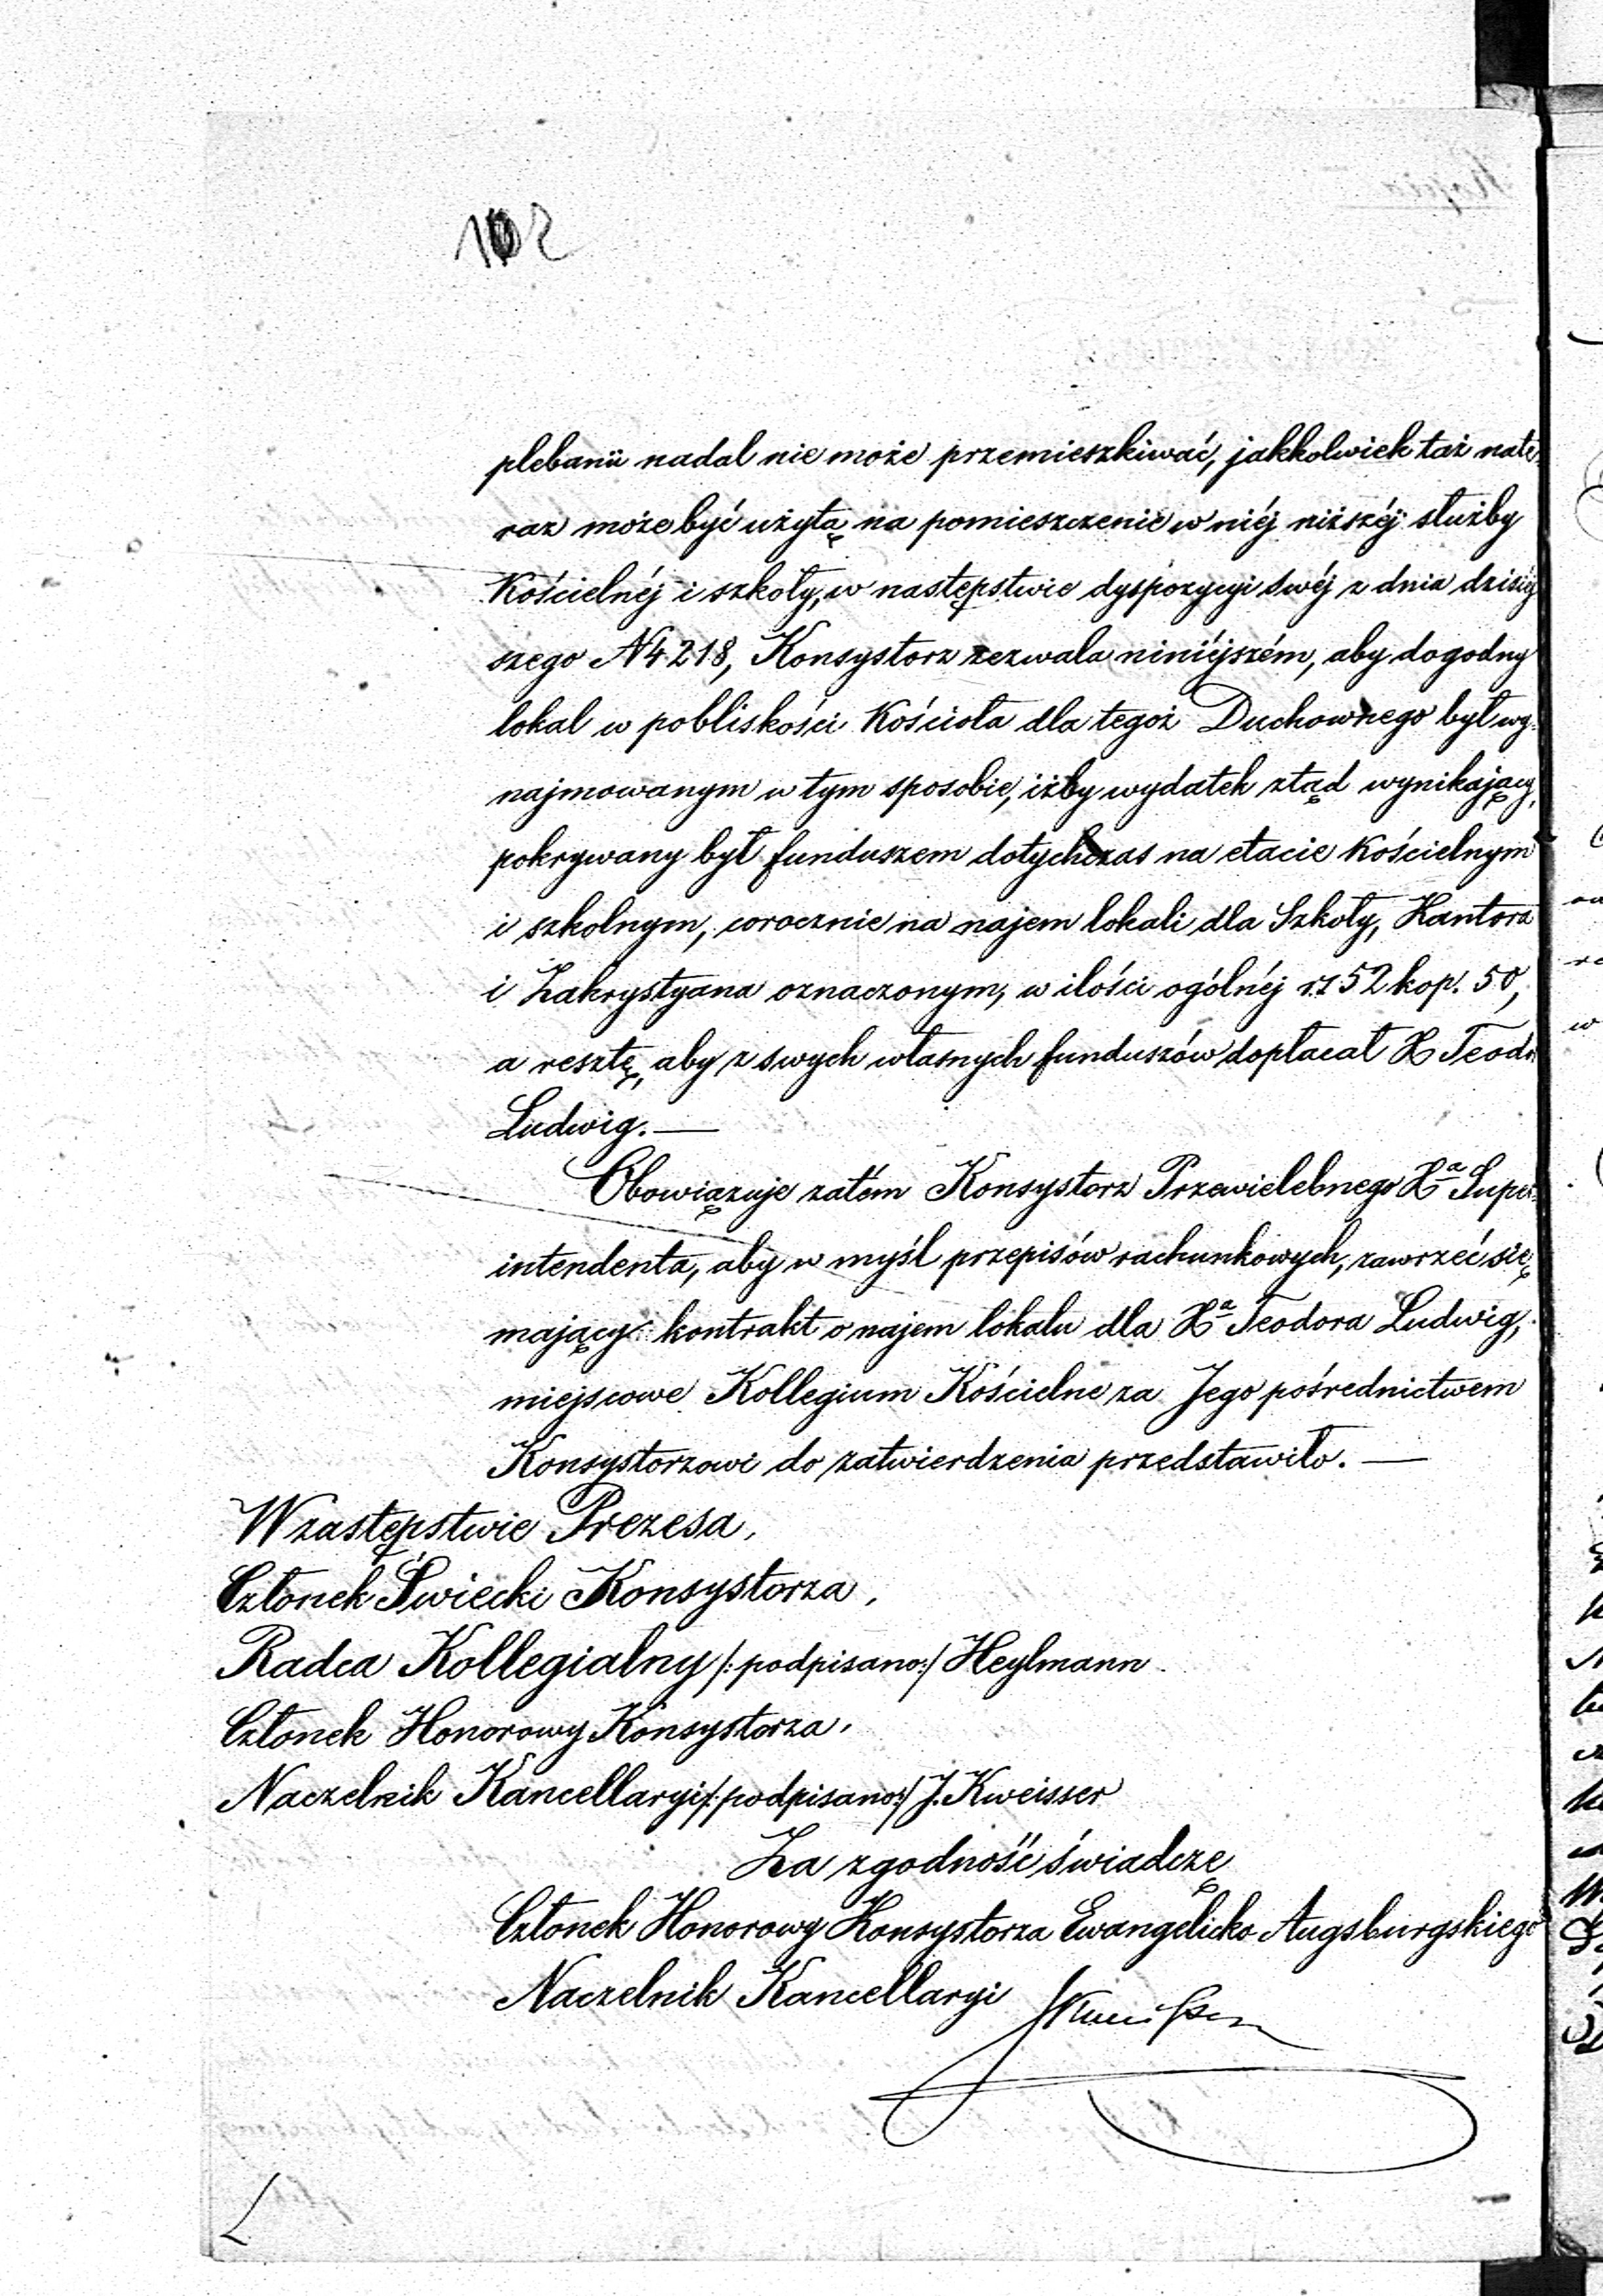 102
plebanii nadal nie może przemieszkiwać, jakkolwiek taż nate-
raz może być użytą na pomieszczenie w niéj niższéj służby
Kościelnéj i szkoły, w następstwie dyspozycyi swéj z dnia dzisiej
szego N 4218, Konsystorz zezwala niniéjszém, aby dogodny
lokal w pobliskości Kościoła dla tegoż Duchownego był wy-
najmowanym w tym sposobie, iżby wydatek ztąd wynikający,
pokrywany był funduszem dotychczas na etacie Kościelnym
i szkolnym, corocznie na najem lokali dla Szkoły, Kantora
i Zakrystyana oznaczonym, w ilości ogólnéj 152 kop. 50,
a resztę, aby z swych własnych funduszów dopłacał X Teodor
Ludwig. —
Obowiązuje zatém Konsystorz Przewielebnego Xa Super-
intendenta, aby w myśl przepisów rachunkowych, zawrzeć się
mający kontrakt o najem lokalu dla Xa Teodora Ludwig,
miejscowe Kollegium Kościelne za Jego pośrednictwem
Konsystorzowi do zatwierdzenia przedstawiło. —
W zastępstwie Prezesa,
Członek Świecki Konsystorza,
Radca Kollegialny /: podpisano :/ Heylmann
Członek Honorowy Konsystorza,
Naczelnik Kancellaryi /: podpisano :/ J. Kweisser
Za zgodność świadczę
Członek Honorowy Konsystorza Ewangelicko Augsburgskiego
Naczelnik Kancellaryi